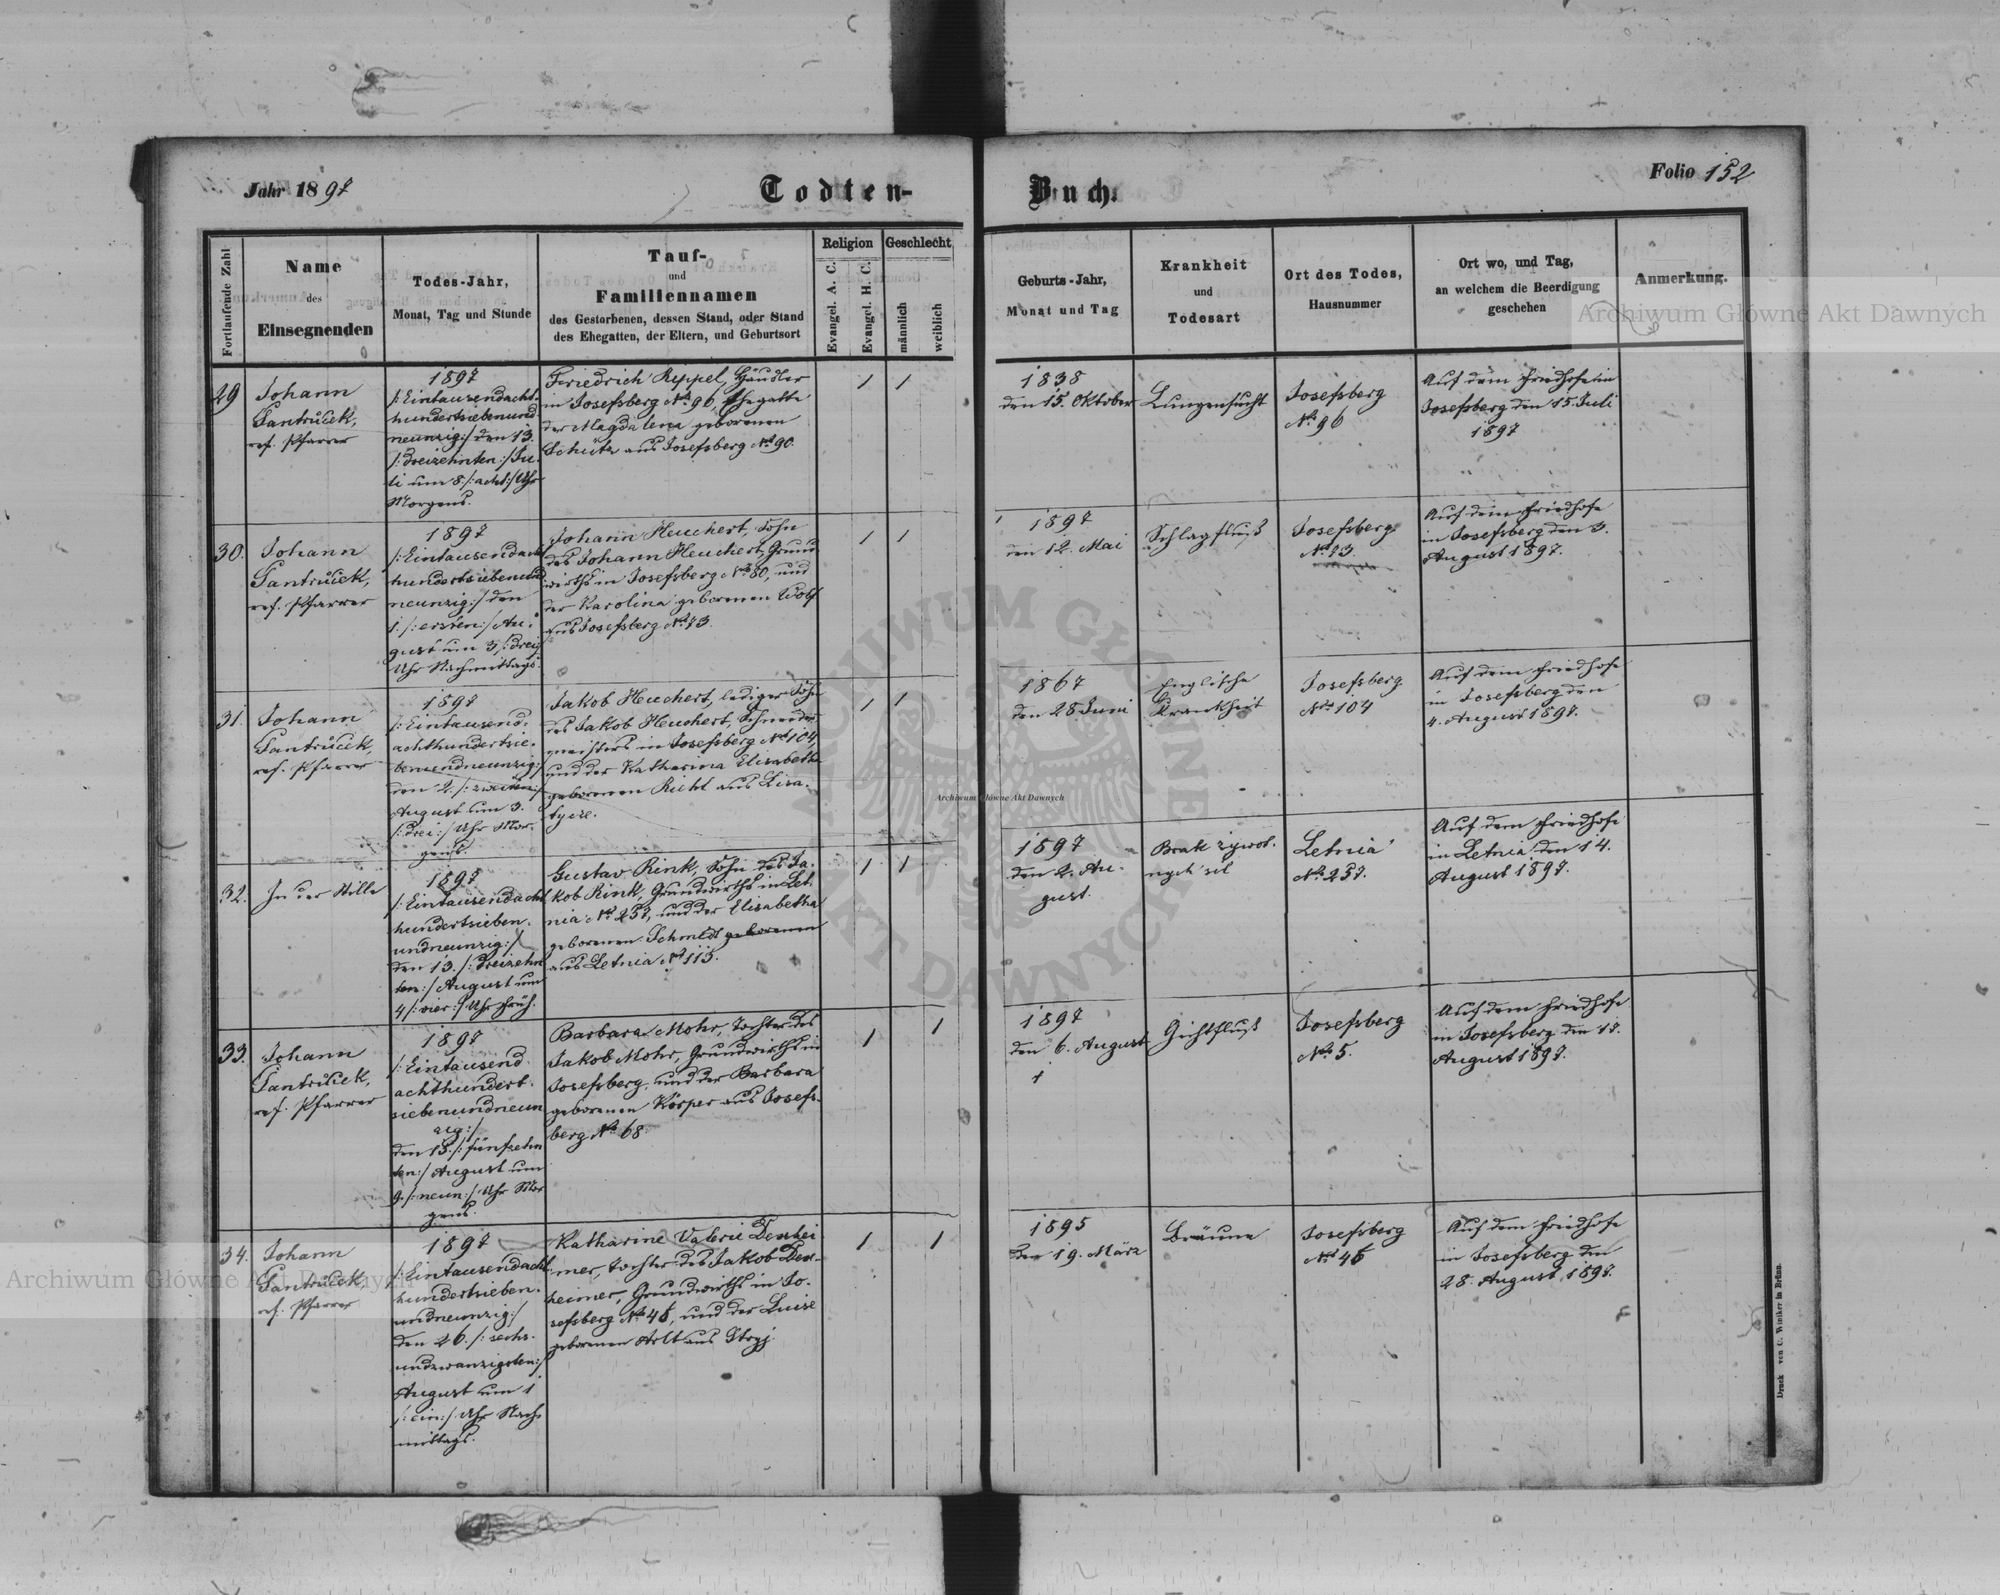 Jahr 1897
Todten-
Buch.
Folio 152
Fortlaufende Zahl
Name
des
Einsegnenden
Todes-Jahr,
Monat, Tag und Stunde
Tauf-
und
Familiennamen
des Gestorbenen, dessen Stand, oder Stand
des Ehegatten, der Eltern, und Geburtsort
Religion
Evangel. A. C.
Evangel. H. C.
Geschlecht
männlich
weiblich
Geburts-Jahr,
Monat und Tag
Krankheit
und
Todesart
Ort des Todes,
Hausnummer
Ort wo, und Tag,
an welchem die Beerdigung
geschehen
Anmerkung.
29
Johann
Jantrůček,
ref. Pfarrer
1897
/:Eintausendacht-
hundertsiebenund-
neunzig:/ den 13.
/:dreizehnten:/ Ju-
li um 8 /:acht:/ Uhr
Morgens.
Friedrich Reppel, Häusler
in Josefsberg No 96, Ehegatte
der Magdalena geborenen
Schütz aus Josefsberg No 90.
1
1
1838
den 15. Oktober
Lungensucht
Josefsberg
No 96
Auf dem Friedhofe in
Josefsberg den 15. Juli
1897
30.
Johann
Jantrůček,
ref. Pfarrer
1897
/:Eintausendacht
hundertsiebenund
neunzig:/ den
1. /:ersten:/ Au-
gust um 3 /:drei
Uhr Nachmittags.
Johann Heuchert, Sohn
des Johann Heuchert, Grund
wirths in Josefsberg No 80, und
der Karolina geborenen Wolf
aus Josefsberg No 73.
1
1
1897
den 12. Mai
Schlagfluß
Josefsberg
No 73
Auf dem Friedhofe
in Josefsberg den 3.
August 1897.
31.
Johann
Jantrůček,
ref. Pfarrer
1897
/:Eintausend-
achthundertsie-
benundneunzig:/
den 2. /:zweiten:/
August um 3.
/:drei:/ Uhr Mor-
gens.
Jakob Heuchert, lediger Sohn
des Jakob Heuchert, Schneider
meisters in Josefsberg No 104,
und der Katharina Elisabetha
geborenen Richt aus Liza-
tycze.
1
1
1867
den 28 Juni
Englische
Krankheit
Josefsberg
No 104
Auf dem Friedhofe
in Josefsberg den
4. August 1897.
32.
In der Stille
1897
/:Eintausendacht
hundertsieben-
undneunzig:/
den 13. /:dreizehn
ten:/ August um
4 /:vier:/ Uhr früh.
Gustav Rink, Sohn des Ja-
kob Rink, Grundwirths in Let-
nia No 257, und der Elisabetha
geborenen Schmidt geborenen
aus Letnia No 115.
1
1
1897
den 2. Au-
gust
Brak żywot-
nych sił
Letnia
No 257.
Auf dem Friedhofe
in Letnia den 14.
August 1897.
33.
Johann
Jantrůček,
ref. Pfarrer
1897
/:Eintausend
achthundert-
siebenundneun
zig:/
den 15. /:fünfzehn
ten:/ August um
9. /:neun:/ Uhr Mor
gens.
Barbara Mohr, Tochter des
Jakob Mohr, Grundwirths in
Josefsberg, und der Barbara
geborenen Körper aus Josefs-
berg No 68.
1
1
1897
den 6. August
1
Gichtfluß
Josefsberg
No 5.
Auf dem Friedhofe
in Josefsberg den 17.
August 1897.
34.
Johann
Jantrůček,
ref. Pfarrer
1897
/:Eintausendacht
hundertsieben-
undneunzig:/
den 26. /:sechs-
undzwanzigsten:/
August um 1
/:ein:/ Uhr Nach
mittags.
Katharine Valerie Denhei
mer, Tochter des Jakob Den-
heimer, Grundwirths in Jo-
sefsberg No 45, und der Luise
geborenen Arlt aus Stryj.
1
1
1895
den 19. März
Bräune
Josefsberg
No 45
Auf dem Friedhofe
in Josefsberg den
28. August 1897.
Druck von C. Winiker in Brünn.
Archiwum Główne Akt Dawnych
Archiwum Główne Akt Dawnych
Archiwum Główne Akt Dawnych
ARCHIWUM GŁÓWNE AKT DAWNYCH